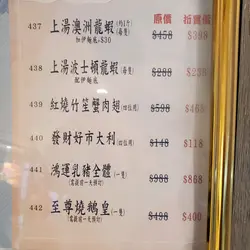 原價 折實價
437 上湯澳洲龍蝦(約1斤)(每隻) $458 $388
加伊麵底+$30
438 上湯波士頓龍蝦(每隻) $288 $238
跟伊麵底
439 紅燒竹笙蟹肉翅(四位用) $598 $468
440 發財好市大利(四位用) $148 $118
441 鴻運乳豬全體(一隻) $988 $888
(需提前一天預訂)
442 至尊燒鵝皇(一隻) $498 $400
(需提前一天預訂)